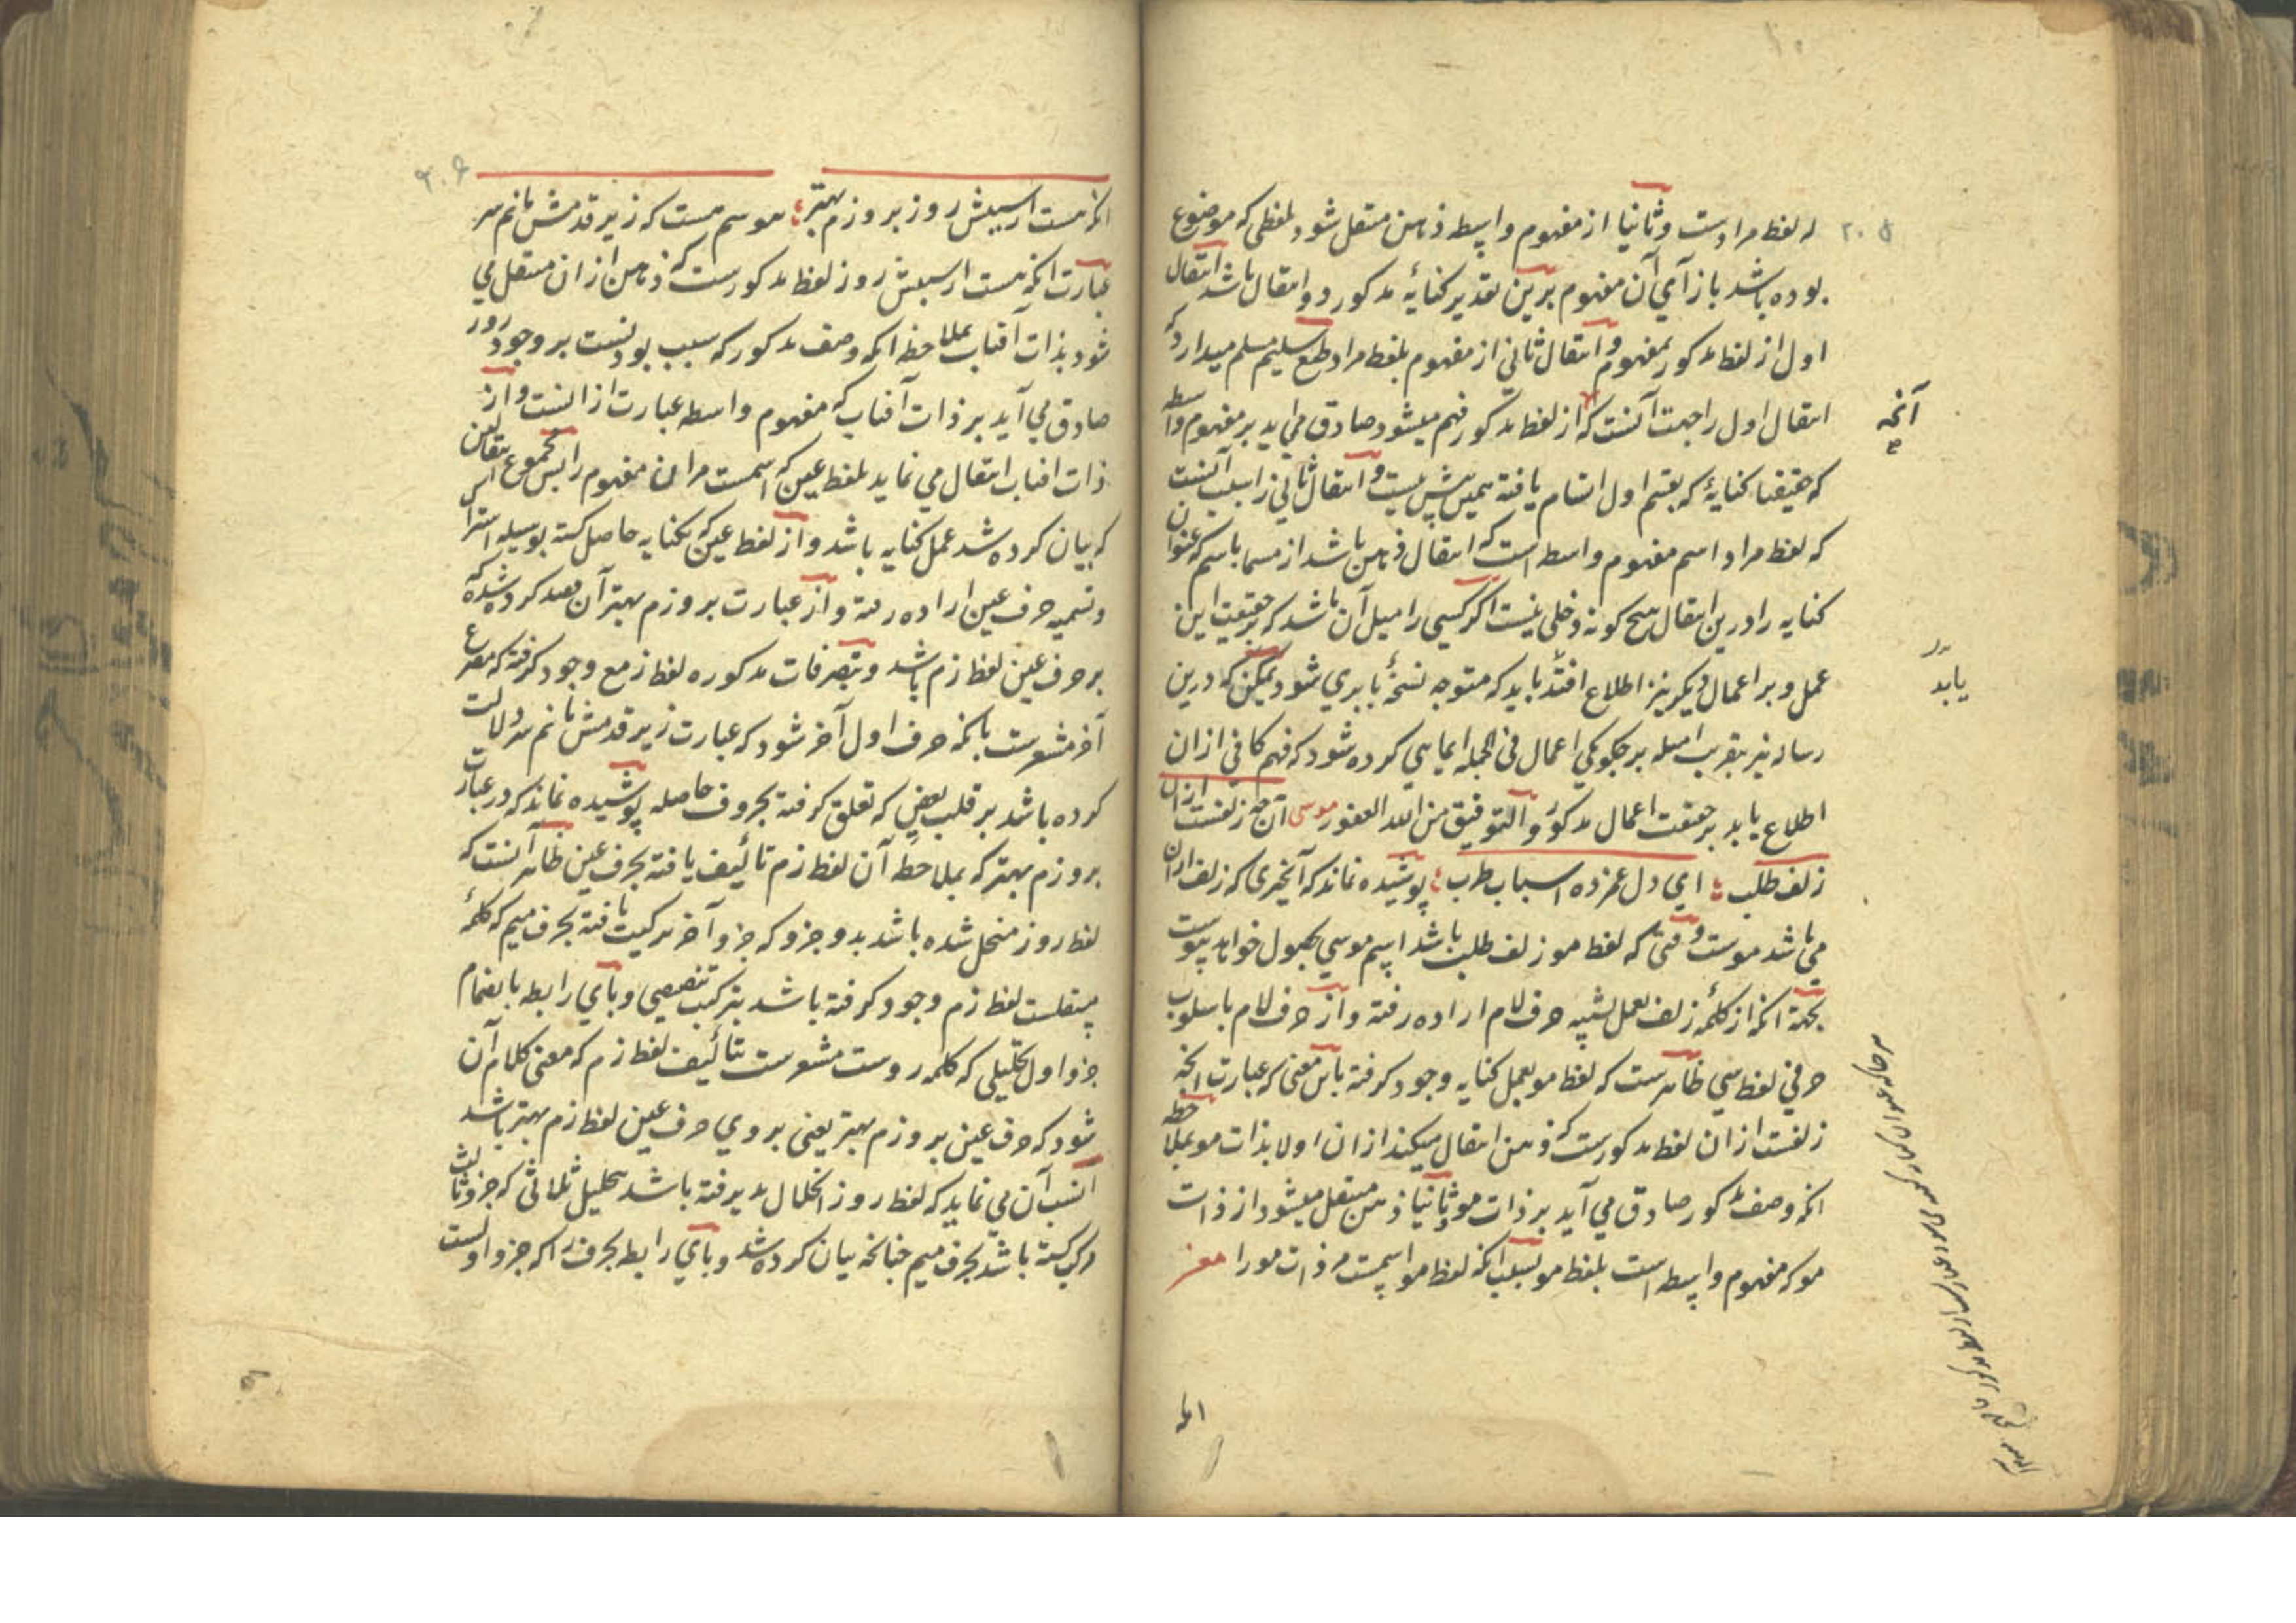 ۲۰۵
له لفظ مرادست وثانیا از مفهوم واسطه ذهن منتقل شود بلفظی که موضوع
بوده باشد بازآی آن مفهوم برین تقدیر کنایهٔ مذکور دو انتقال باشد انتقال
اول از لفظ مذکور بمفهوم و انتقال ثانی از مفهوم بلفظ مراد طبع سلیم مسلم میدارد که
انتقال اول را جهت آنست که از لفظ مذکور فهم میشود صادق می اید بر مفهوم واسطه
آنچه
که حقیقتا کنایهٔ که بقسم اول اتسام یافته همین پیش نیست و انتقال ثانی را سبب آنست
که لفظ مراد اسم مفهوم واسطه است که انتقال ذهن باشد از مسما باسم که عنوان
کنایه را درین انتقال هیچ کونه دخلی نیست اکر کسی را میل آن باشد که بر حقیقت این
عمل و بر اعمال دیکر نیز اطلاع افتد باید که متوجه نسخهٔ بابری شود و ممکن که درین
یابد
رساله نیز بتقریب امثله بر چکونکی اعمال فی الجمله ایمایی کرده شود که فهم کافی ازان
اطلاع یابد بر حقیقت اعمال مذکور و التوفیق من الله الغفور موسی آن چه زلفست ازان
زلف طلب ای دل غمزده اسباب طرب پوشیده نماند که آنچیزی که زلف ازان
می باشد موست وقتی که لفظ مو زلف طلب باشد اسم موسی بحصول خواهد پیوست
بجهة انکه از کلمهٔ زلف بعمل تشبیه حرف لام اراده رفته و از حرف لام باسلوب
حرفی لفظ سی ظاهرست که لفظ مو بعمل کنایه وجود کرفته باین معنی که عبارت انچه
زلفست ازان لفظ مذکورست که ذهن انتقال میکند ازان اولا بذات مو بملاحظه
انکه وصف مذکور صادق می آید بر ذات مو و ثانیا ذهن منتقل میشود از ذات
مو که مفهوم واسطه است بلفظ مو بسبب انکه لفظ مو اسمست مر ذات مو را معز
۲۰۶
انکه هست از سببش روز بروزم بهتر موسم هست که زیر قدمش مانم سر
عبارت انکه هست از سببش روز لفظ مذکورست که ذهن ازان منتقل می
شود بذات آفتاب بملاحظه انکه وصف مذکور که سبب بودنست بر وجود روز
صادق می آید بر ذات آفتاب که مفهوم واسطه عبارت از انست و از
ذات افتاب انتقال می نماید بلفظ عین که اسمست مر ان مفهوم را پس مجموع انتقالین
که بیان کرده شد عمل کنایه باشد و از لفظ عین که بکنایه حاصل کشته بوسیله اشتراک
و تسمیه حرف عین اراده رفته و از عبارت بروزم بهتر آن قصد کرده شده که
بر حرف عین لفظ زم باشد و بتصرفات مذکوره لفظ زمع وجود کرفته که مصرع
آخر مشعرست بانکه حرف اول آخر شود که عبارت زیر قدمش مانم سر دلالت
کرده باشد بر قلب بعض که تعلق کرفته بحروف حاصله پوشیده نماند که در عبارت
بروزم بهتر که بملاحظه آن لفظ زم تألیف یافته بحرف عین ظاهر آنست که
لفظ روز منحل شده باشد بدو جزو که جزو آخر ترکیب یافته بحرف میم که کلمهٔ
مستقلست لفظ زم وجود کرفته باشد بترکیب تنصیصی و بای رابطه بانضمام
جزو اول تحلیلی که کلمه روست مشعرست بتألیف لفظ زم که معنی کلام آن
شود که حرف عین بروزم بهتر یعنی بروی حرف عین لفظ زم بهتر باشد
انسب آن می نماید که لفظ روز انحلال پذیرفته باشد بتحلیل ثلاثی که جزو ثالث
مرکب کشته باشد بحرف میم چنانچه بیان کرده شد و بای رابطه بحرف را که جزو اولست